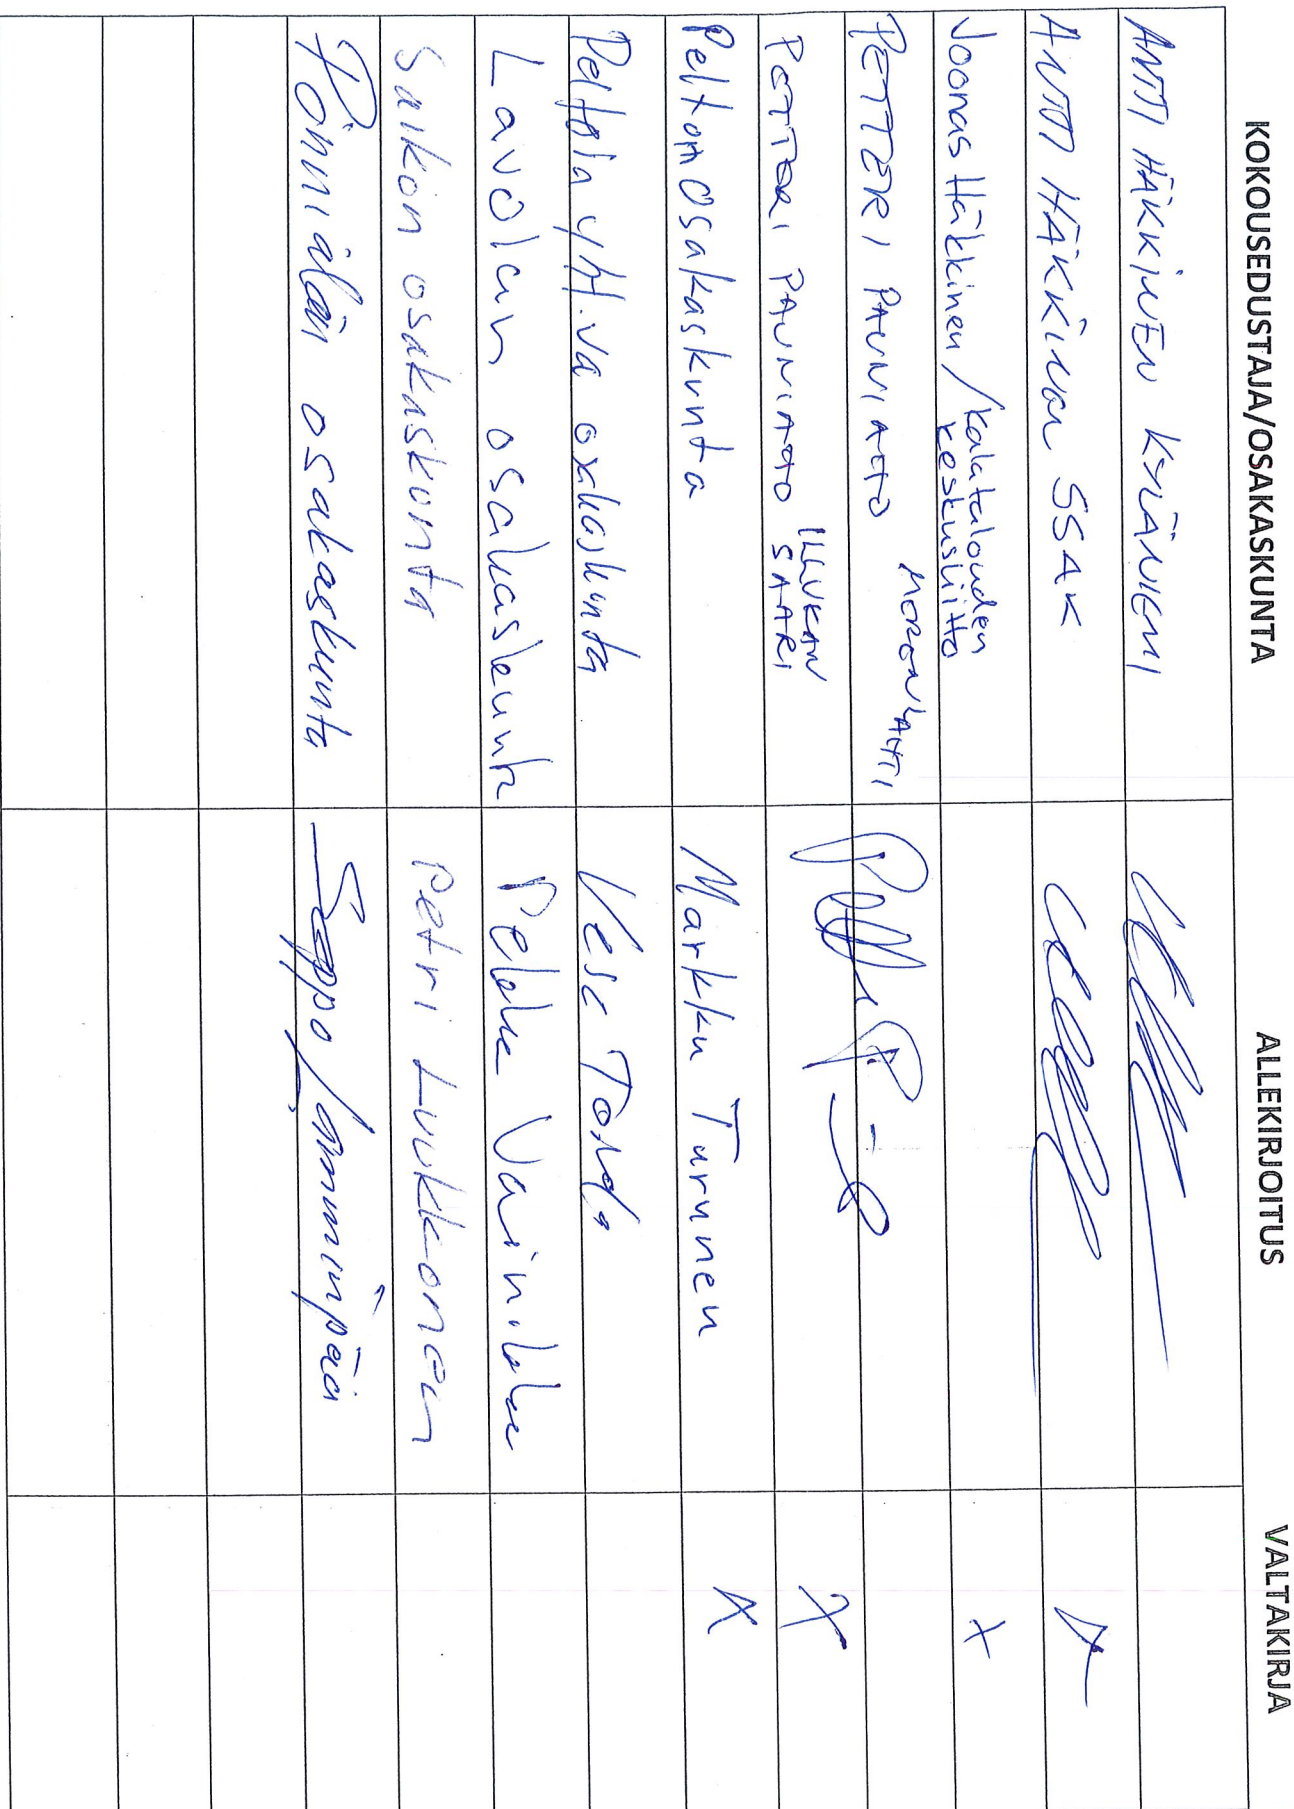 KOKOUSEDUSTAJA/OSAKASKUNTA ALLEKIRJOITUS VALTAKIRJA
ANTTI HÄKKINEN KYLÄNIEMI
ANTTI HÄKKINEN SSAK X
Joonas Häkkinen / Kalatalouden
keskusliitto X
PETTERI PAUNIAHO
PETTERI PAUNIAHO ILLUKAN
SAARI X
Peltom osakaskunta Markku Turunen X
Peltola yht.va osakaskunta Vesa
Lavolan osakaskunta Pekka Vainikka
Saikon osakaskunta Petri Luukkonen
Pönniälän osakaskunta Seppo Lamminpää